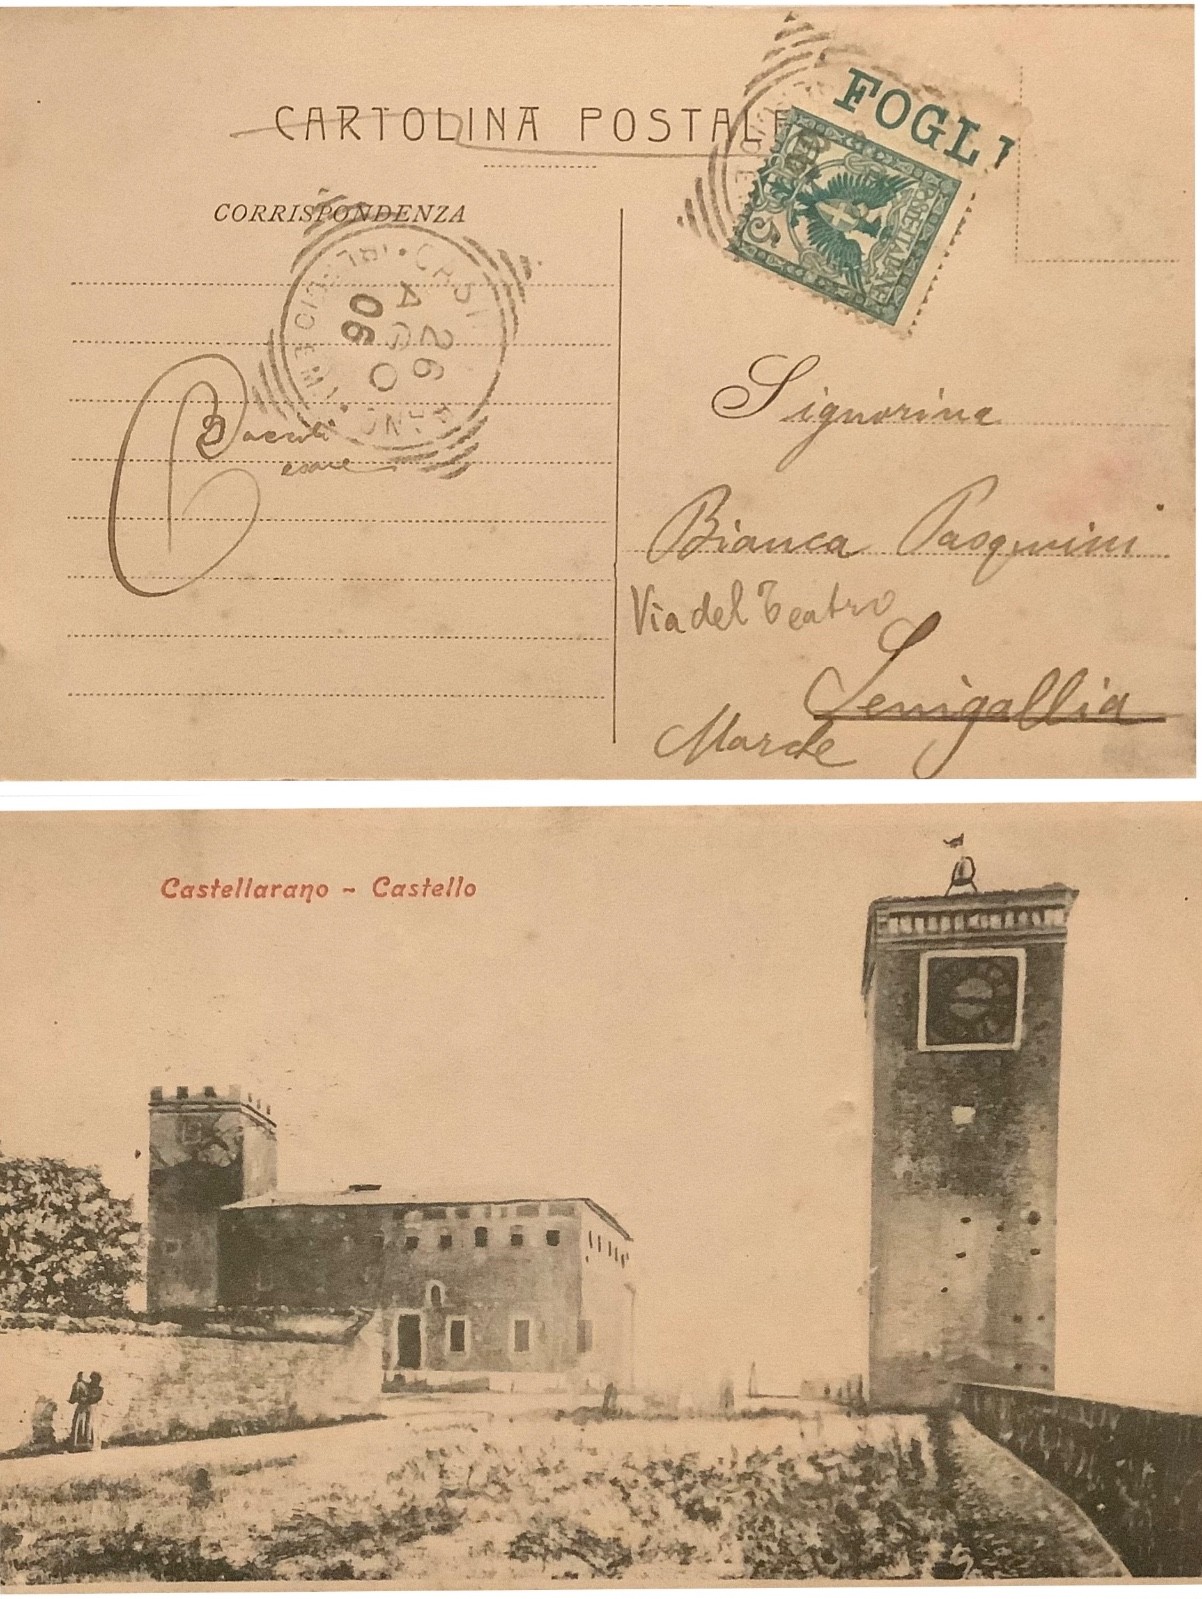 CARTOLINA POSTALE
FOGLI
POSTE ITALIANE
5
CORRISPONDENZA
26
AGO
06
Cesare
Signorina
Bianca Pasquini
Via del Teatro
Senigallia
Marche
Castellarano - Castello